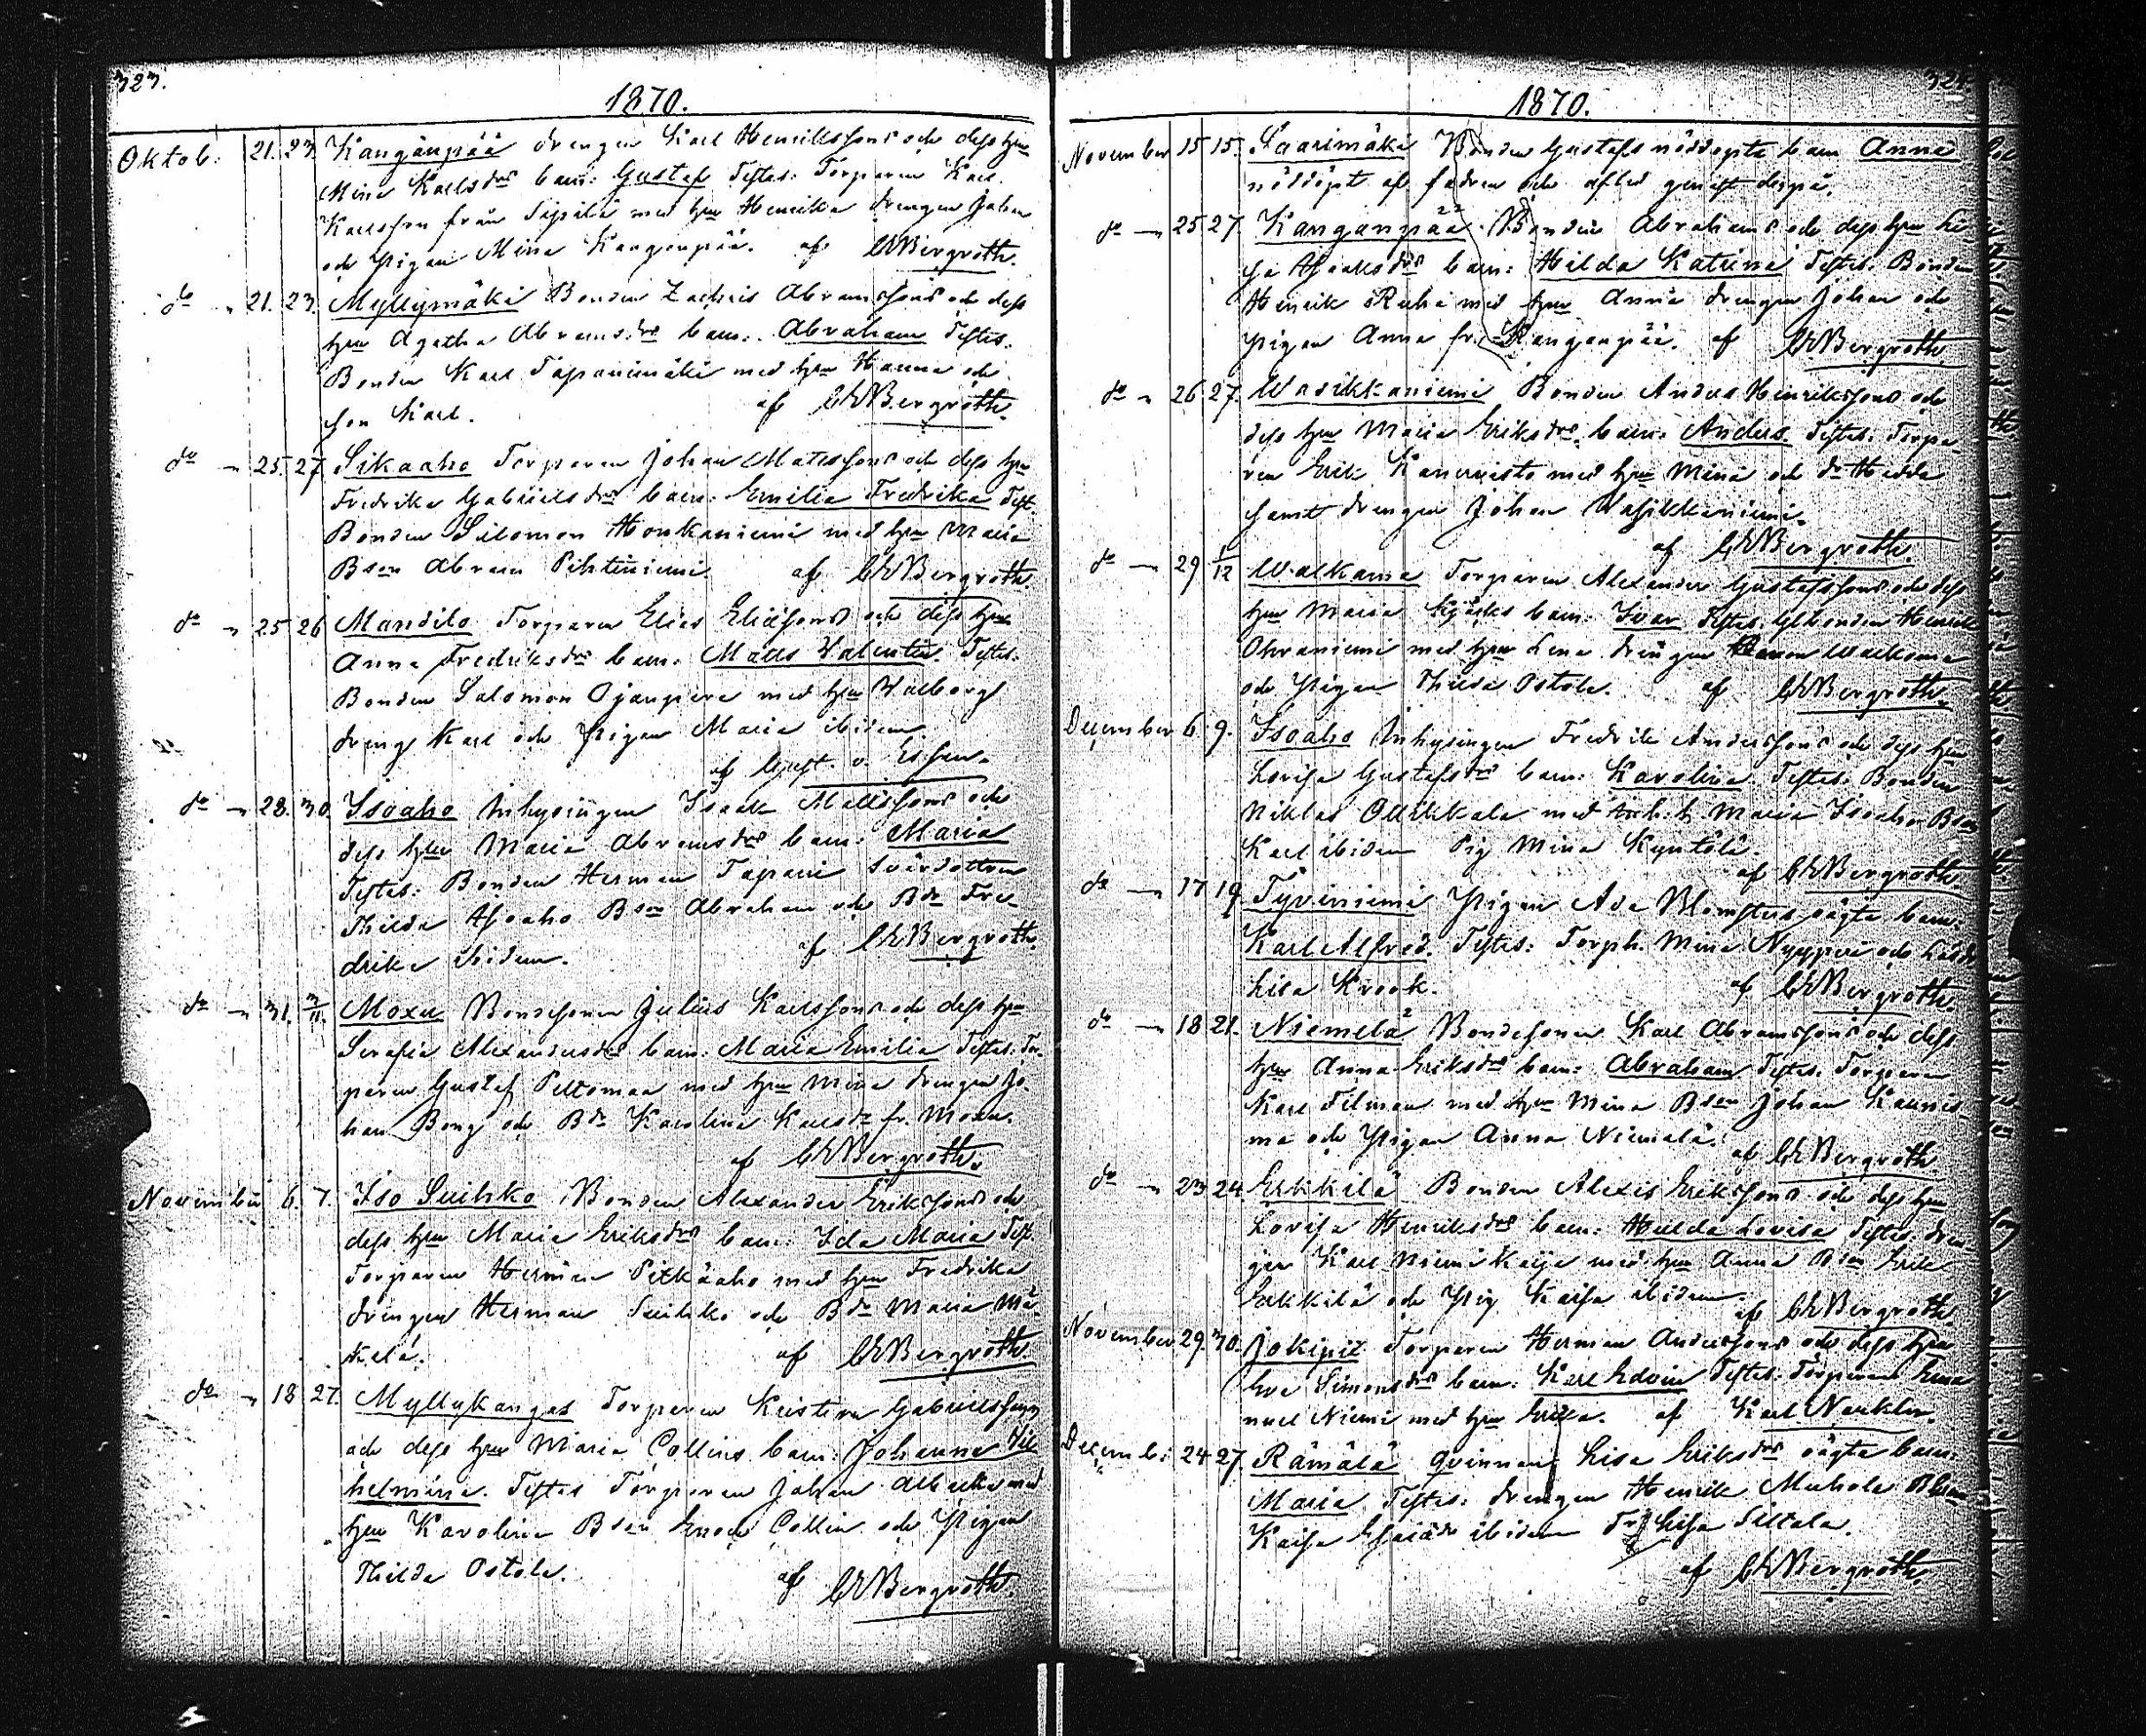 323.
1870.
Oktob: 21. 23. Kangånpää drengen Karl Henrikssons och dess hu
Mina Karlsdrs barn: Gustaf Testes: Torparen Karl
Karlsson från Tapala med hu Henrika drengen Johan
och pigan Mina Kangonpää. af CWBergroth.
do " 21. 23. Myllymäki Bonden Zachris Abramssons och dess
hu Agatha Abramsdrs barn: Abraham Testes.
Bonden Karl Tapanimäki med hu Hanna och
son Karl. af CWBergroth.
do " 25. 27. Sikaaho Torparen Johan Matssons och dess hu
Fredrika Gabrielsdrs barn: Emilia Fredrika Test.
Bonden Salomon Honkaniemi med hu Maria
Bson Abram Pihtiniemi. af CWBergroth.
do " 25 26 Mansilo Torparen Elias Eliassons och dess hu
Anna Fredriksdrs barn: Matts Valentin. Testes:
Bonden Salomon Ojanpera med hu Walborg
dreng Karl och pigan Maria ibidem
af Gust. v. Essen.
do " 28. 30. Isoaho Inhysingen Isaak Mattssons och
dess hu Maria Abramsdrs barn: Maria
Testes: Bonden Herman Tapani Svärdottren
Thilda Isoaho Bson Abraham och Bdr Fre-
drika ibidem. af CWBergroth.
do " 31. 3/11. Moxu Bondesonen Julius Karlssons och dess hu
Serafia Alexandersdrs barn: Maria Emilia Testes: Tor-
paren Gustaf Peltomaa med hu Mina drengen Jo
han Bong och Bdr Karolina Karlsdr fr. Moxu.
af CWBergroth.
November 6. 7. Iso Luihko Bonden Alexander Erikssons och
dess hu Maria Eriksdrs barn: Ida Maria Test.
Torparen Herman Pitkäaho med hu Fredrika
drengen Herman Luihko och Bdr Maria Mä-
kelä. af CWBergroth.
do " 18 27. Myllykangas Torparen Kristian Gabrielssons
och dess hu Maria Collins barn: Johanna Wil
helmina. Testes Torparen Johan med
hu Karolina Bson Enoch Collin och pigan
Thilda Ostola. af CWBergroth.
324.
1870.
November 15 15. Saarimäki Bonden Gustafs nöddöpta barn Anna
nöddöpt af fadren och afled genast derpå.
do " 25 27. Kanganpää Bonden Abrahams och dess hu Li-
sa Isaaksdrs barn: Hilda Katrina Testes: Bonden
Henrik Ruha med hu Anna drengen Johan och
pigan Anna fr. Kanganpää. af CWBergroth
do " 26 27. Wasikkaniemi Bonden Anders Henrikssons och
dess hu Maria Eriksdrs barn: Anders Testes: Torpa-
ren Erik Kanervisto med hu Mina och dr Hedda
samt drengen Johan Wasikkaniemi.
af CWBergroth.
do " 29 1/12 Walkama Torparen Alexander Gustafssons och dess
hu Maria barn: Ivar Testes: Glbonden Henrik
Ohraniemi med hu Lena drengen Walkama
och pigan Thilda Ostola. af CWBergroth.
December 6. 9. Isoaho Inhysingen Fredrik Anderssons och dess hu
Lovisa Gustafsdrs barn: Karolina Testes: Bonden
Niklas Ollikkala med h. Maria Isoaho Bson
Karl ibidem Pig Mina Kyntölä.
af CWBergroth.
do " 17 19. Tyviniemi Pigan Ada Blomsters oägta barn:
Karl Alfred. Testes: Torph. Mina Nyyppi och
Lisa Krook. af CWBergroth.
do " 18 21. Niemelä Bondesonen Karl Abramssons och dess
hu Anna Eriksdrs barn: Abraham Testes: Torparen
Karl Filman med hu Mina Bson Johan Kaunis-
ma och pigan Anna Niemelä. af CWBergroth.
do " 23 24. Erkkilä Bonden Alexis Erikssons och dess hu
Lovisa Henriksdrs barn: Hulda Lovisa Testes: dren-
gen Karl Niemikeije med hu Anna Bson Erik
Erkkilä och pig Kaisa ibidem. af CWBergroth.
November 29. 30. Jokipii Torparen Herman Anderssons och dess hu
Eva Simonsdrs barn: Karl Edvin Testes: Torparen Ema
nuel Niemi med hu Erika. af Karl Nauklér.
Decemb: 24 27. Rämälä qvinnan Lisa Eriksdrs oägta barn:
Maria Testes: drengen Henrik Muhola
Kaisa Esaiädr ibidem Lisa Siltala.
af CWBergroth.